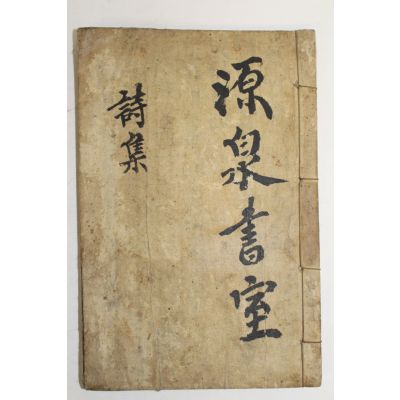 源泉書室
詩集